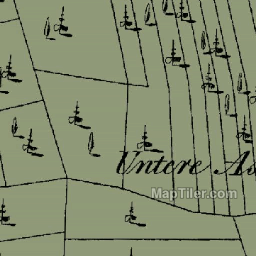 Untere
MapTiler.com